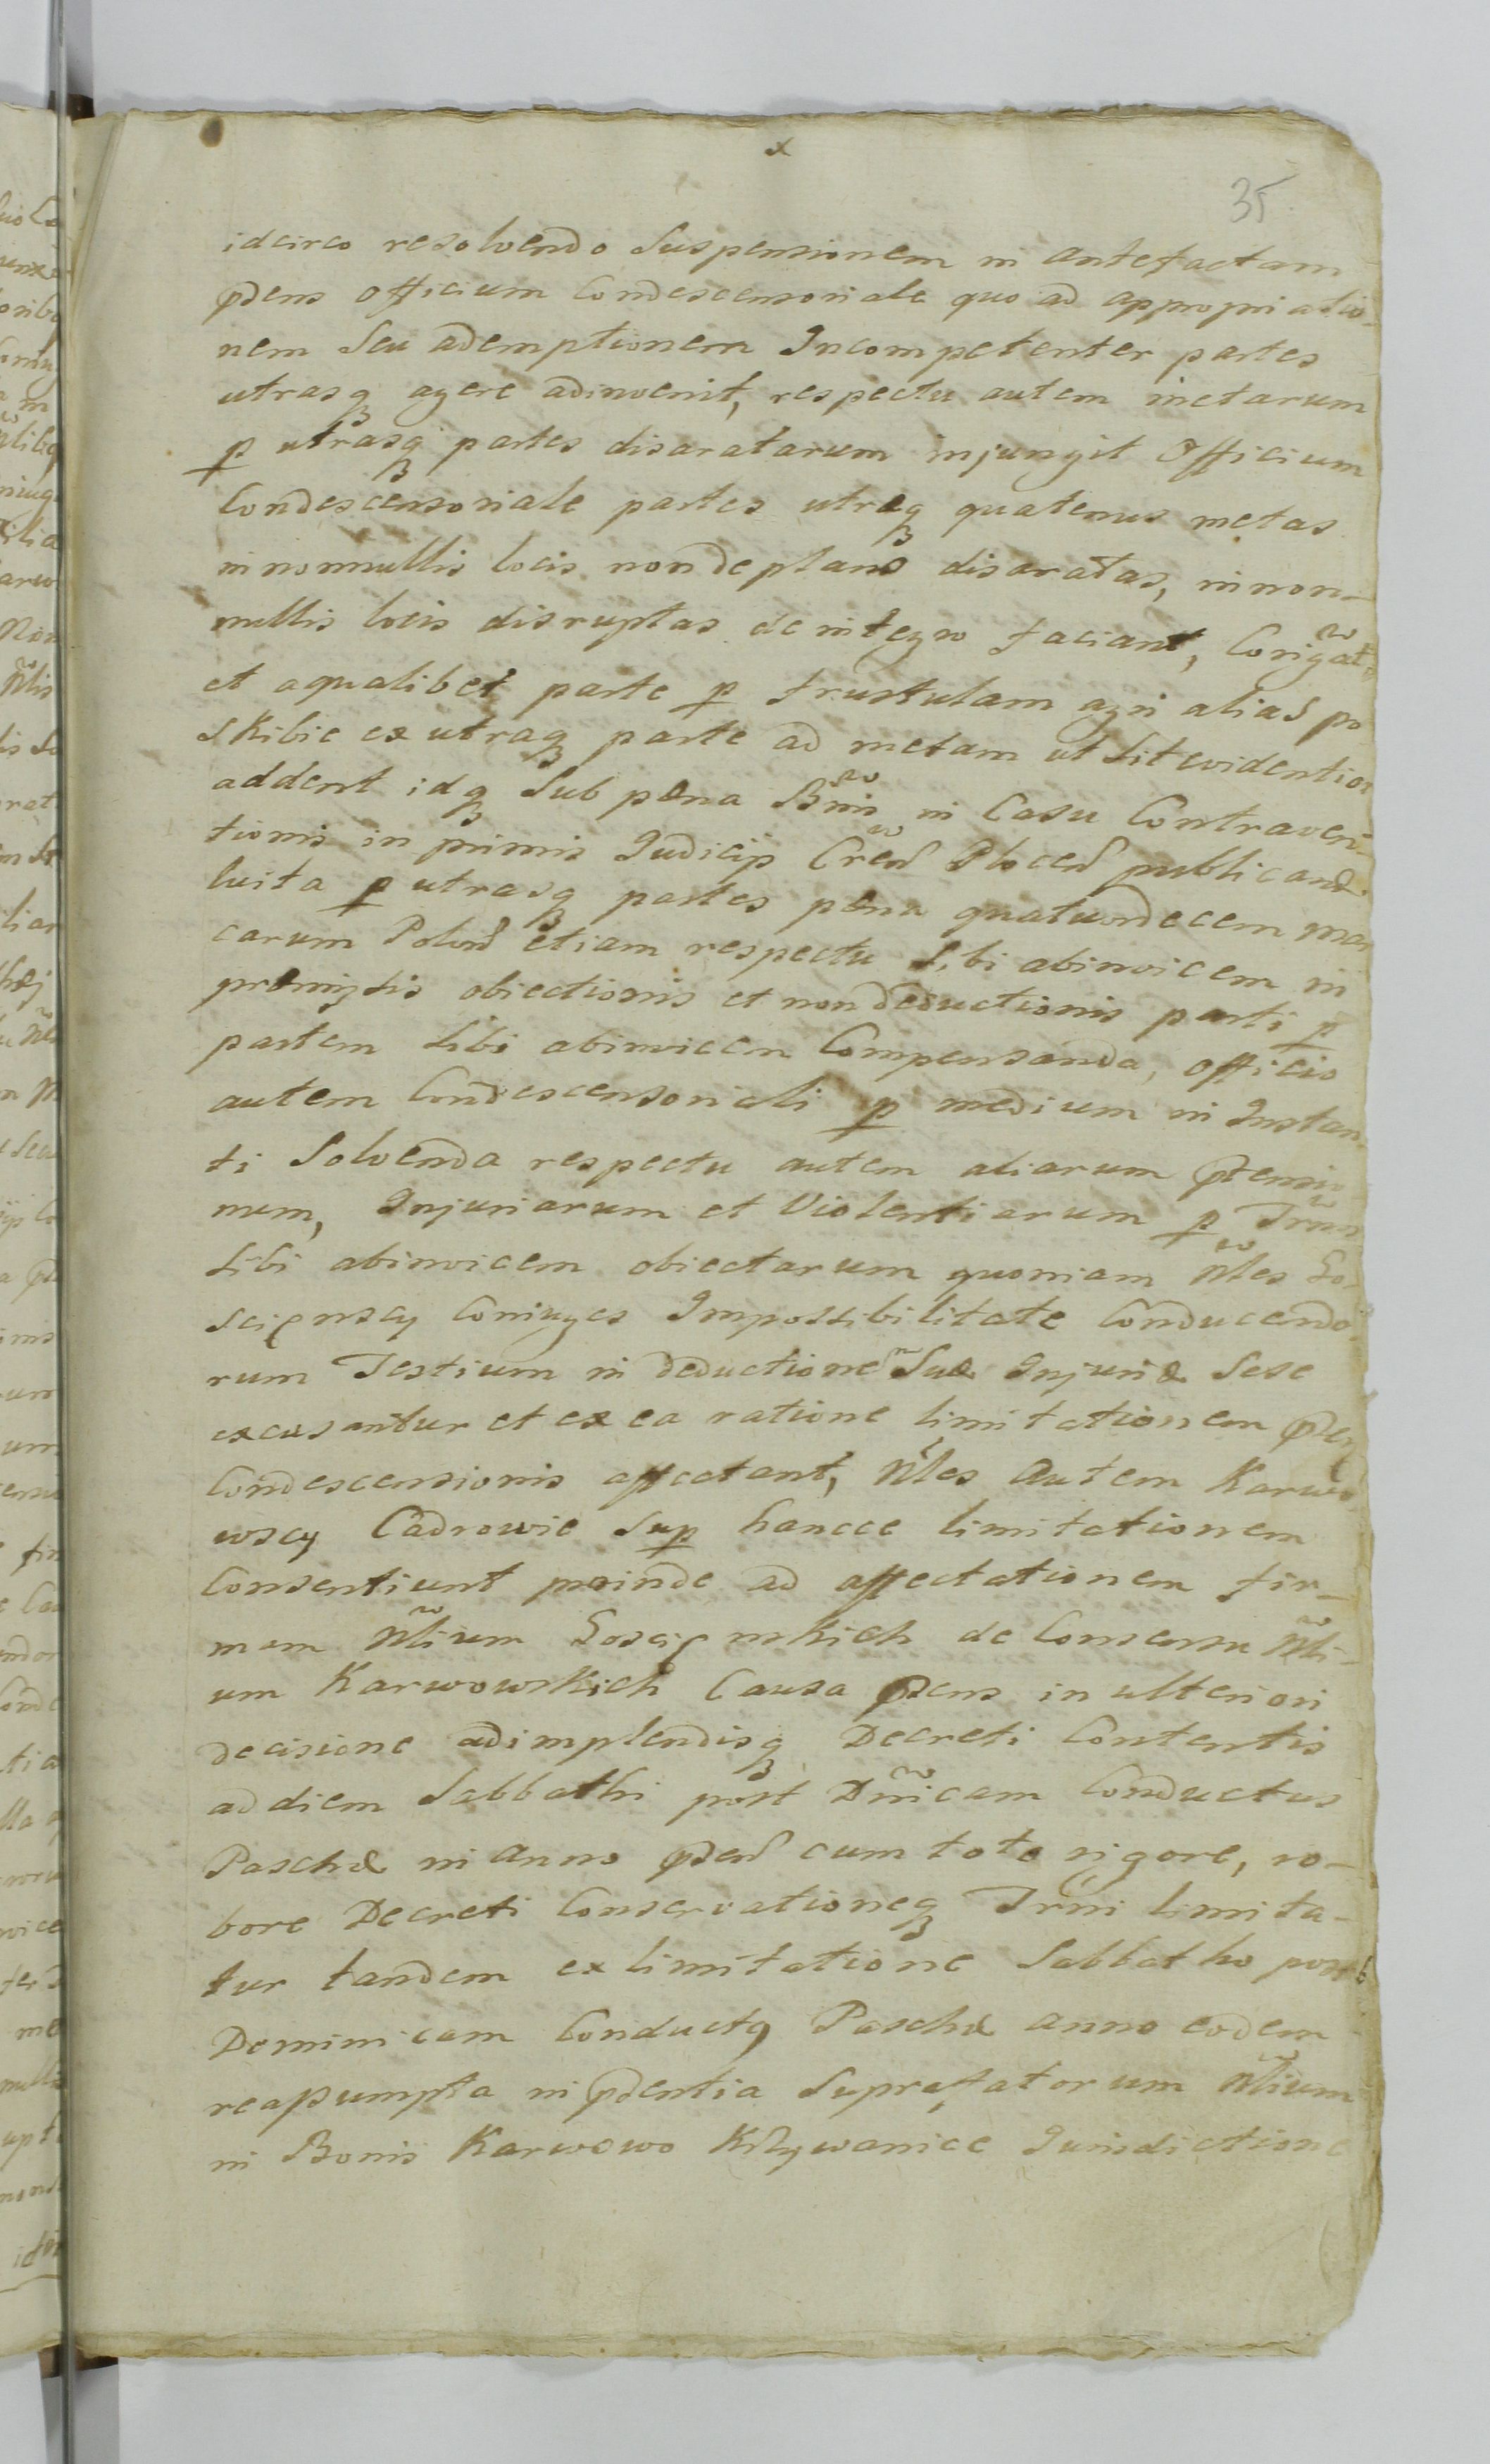 x
35
idcirco resolvendo Suspensionem in antefactam
p̃dens officium Condescensoriale quo ad appropriatio-
nem Seu ademptionem Incompetenter partes
utrasq agere adinvenit, respectu autem metarum
p utrasq partes disaratarum injungit Officium
Condescensoriale partes utræq quatenus metas
in nonnullis locis non de plano disaratas, in non-
nullis locis disruptas de integro faciant, Corigãt
et a qualibet parte p frustulam agri alias po
Skibie ex utraq parte ad metam ut Sit evidentior
addent idq Sub pæna Bñi in Casu Contraven-
tionis in primis Judicijs Creñ Plocen publicand
luita p utrasq partes pæna quatuordecem mar
carum Polon etiam respectu Sibi abinvicem in
præmissis obiectionis et non deductionis parti p
partem Sibi abinvicem Compensanda, officio
autem Condescensoriali p medium in Instan-
ti Solvenda respectu autem aliarum p̃tensio
num, Injuriarum et Violentiarum p Trm̃
Sibi abinvicem obiectarum quoniam Nb̃les Go-
scięnscy Coniuges Impossibilitate Conducendo
rum Testium in deductionem Suæ Injuriæ Sese
excusantur et ex ea ratione limitationem p̃den
Condescensionis affectant, Nb̃les Autem Karwo
wscy Cadrowie Sup hancce limitationem
Consentiunt proinde ad affectationem fir-
mam Nb̃lium Goscięnskich de Consensu Nb̃li-
um Karwowskich Causa p̃dens in ulteriori
decisione adimplendisq Decreti Contentis
ad diem Sabbathi post Dñicam Conductus
Paschæ in anno p̃den cum toto rigore, ro-
bore Decreti Conservationeq Trm̃i limita-
tur tandem ex limitatione Sabbatho post
Dominicam Conductq Paschæ anno eodem
reassumpta in p̃dentia Suprafatorum Nb̃lium
in Bonis Karwowo Krzywanice Jurisdictione